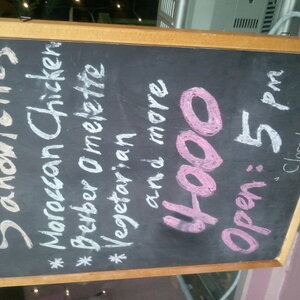 Sandwiches
* Moroccan Chicken
* Berber Omelette
* Vegetarian
and more
4000
Open: 5 pm